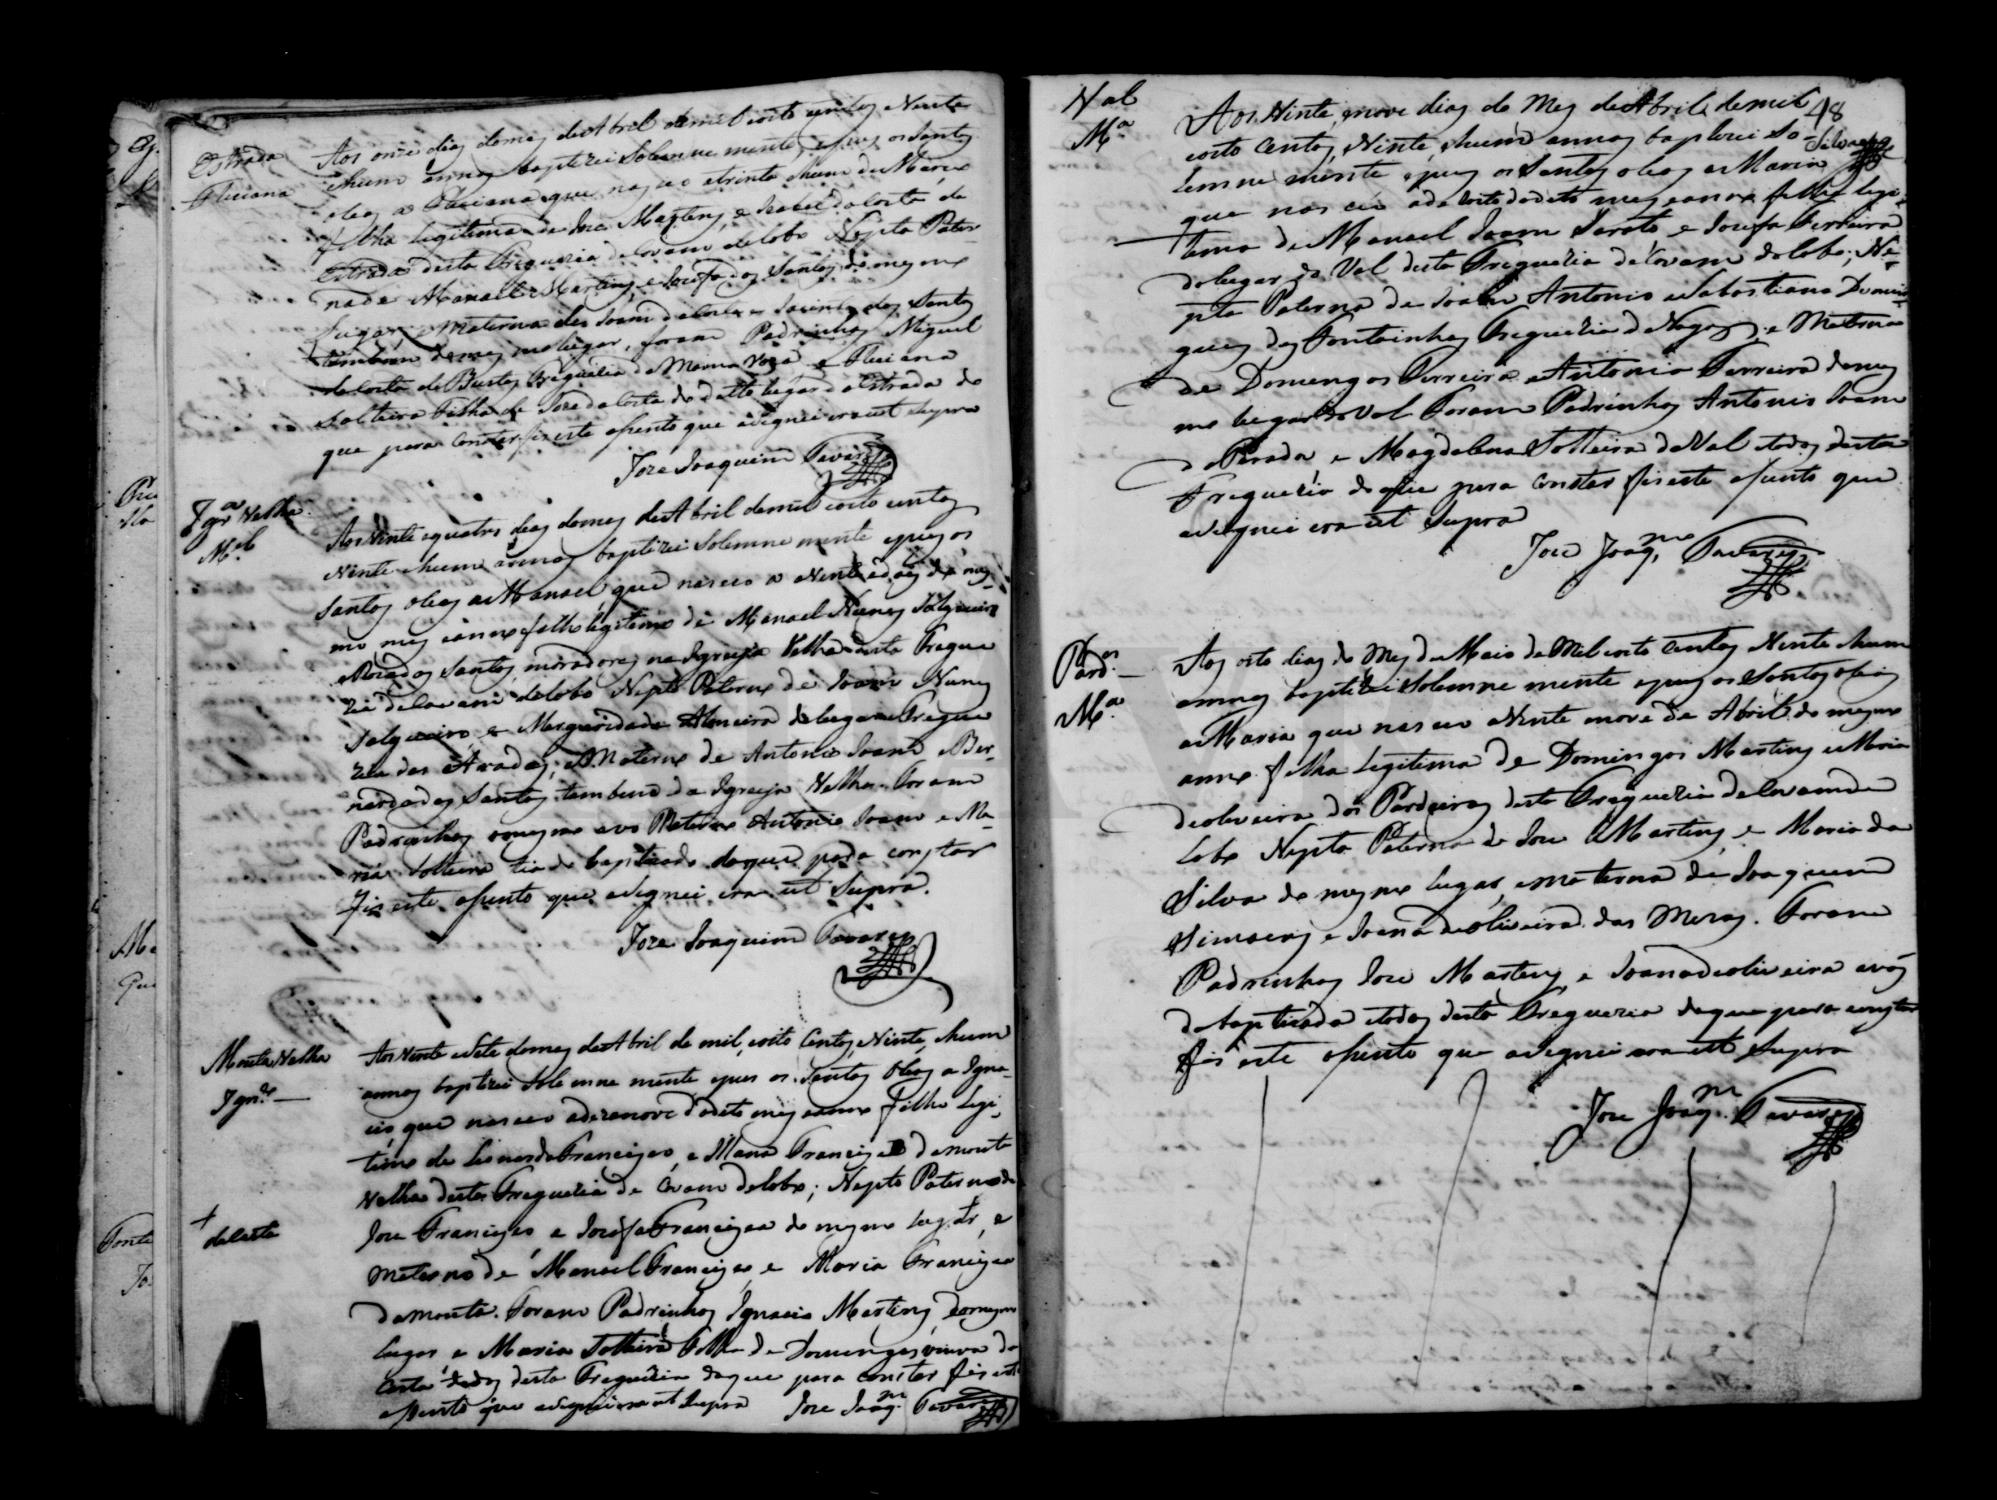 Estrada
Aos onze dias do mes de Abril de mil oito centos e Vinte
e hum annos baptizei Solemne mente, e puz os Santos
oleos a que nasceo a trinta e hum de Março
filha legitima de Joze Martins, e Izabel da Costa da
Estrada desta Freguezia de Covam do Lobo Nepta Pater-
na de Manoel Martins, e Josefa dos Santos do mesmo
Lugar, e Materna de Joam da Costa e dos Santos
tambem do mesmo lugar, foram Padrinhos Miguel
da Costa de Bustos Freguezia de Mamarroza, e
Solteira Filha de Joze da Costa do dito lugar da Estrada do
que para constar fis este asento que asignei era ut supra
Joze Joaquim Tavares
Igrª Velha
M.el
Aos Vinte e quatro dias do mes de Abril de mil oito centos
Vinte e hum annos baptizei Solemne mente e puz os
Santos oleos a Manoel, que nasceo a Vinte do mes-
mo mes e anno filho legitimo de Manoel Nunes Salgueiro
Roza dos Santos moradores na Igreija Velha desta Fregue
zia de Covam do Lobo Nepto Paterno de Joam Nunes
Salgueiro, e Margarida de Almeira do lugar e Fregue
zia das Aradas, e Materno de Antonio Joam e Ber-
narda dos Santos tambem da Igreija Velha. Foram
Padrinhos o mesmo avo Materno Antonio Joam e Ma-
ria Solteira tia do baptizado do que para constar
fis este asento que asignei era ut Supra.
Joze Joaquim Tavares
Monta Velha
Ign.co
Aos Vinte e Sete do mes de Abril de mil, oito Centos, e Vinte, e hum
annos baptizei Solemne mente e pus os Santos Oleos a Igna-
cio que nasceo a dezanove do dito mes e anno Filho Legi-
timo de Leonardo Francisco, e Maria Francisca da monta
Velha desta Freguezia de Covam do Lobo; Nepto Paterno de
Joze Francisco e Josefa Francisca do mesmo lugar, e
Materno de Manoel Francisco, e Maria Francisca
da monta. Foram Padrinhos Ignacio Martins, do mesmo
lugar e Maria Solteira Filha de Domingos viuva da
Costa todos desta Freguezia do que para constar fis este
asento que asignei era ut Supra Joze Joaq.m Tavares
+
da Costa
Val
M.ª
48
Aos Vinte, e nove dias do Mes de Abril de mil
oito Centos, e Vinte, e hum annos baptizei So-
lemne mente e puz os Santos oleos a Maria
que nasceu a dezoito do dito mes e anno filha legi-
tima de Manoel Joam Saroto e Josefa Ferreira
do lugar do Val desta Freguezia de Covam do Lobo; Ne-
pta Paterna de Joam Antonio e Sebastiana Domin
gues das Fontainhas Freguezia de Vagos, e Materna
de Domingos Ferreira e Antonia Ferreira do mes
mo lugar do Val Foram Padrinhos Antonio Joam
da Parada, e Magdalena Solteira do Val todos desta
Freguezia do que para constar fis este asento que
asignei era ut Supra
Joze Joaq.m Tavares
Pard.os
M.ª
Aos oito dias do Mes de Maio de Mil oito Centos Vinte e hum
annos baptizei Solemne mente e puz os Santos oleos
a Maria que nasceo a Vinte e nove de Abril do mesmo
anno filha Legitima de Domingos Martins e Maria
de oliveira dos Pardeiros desta Freguezia de Covam do
Lobo Nepta Paterna de Joze Martins, e Maria da
Silva do mesmo Lugar, e materna de Joaquim
Simoens e Joana de oliveira das Meras. Foram
Padrinhos Joze Martins, e Joana de oliveira avós
da baptizada todos desta Freguezia do que para constar
fis este asento que asignei era ut Supra
Joze Joaq.m Tavares